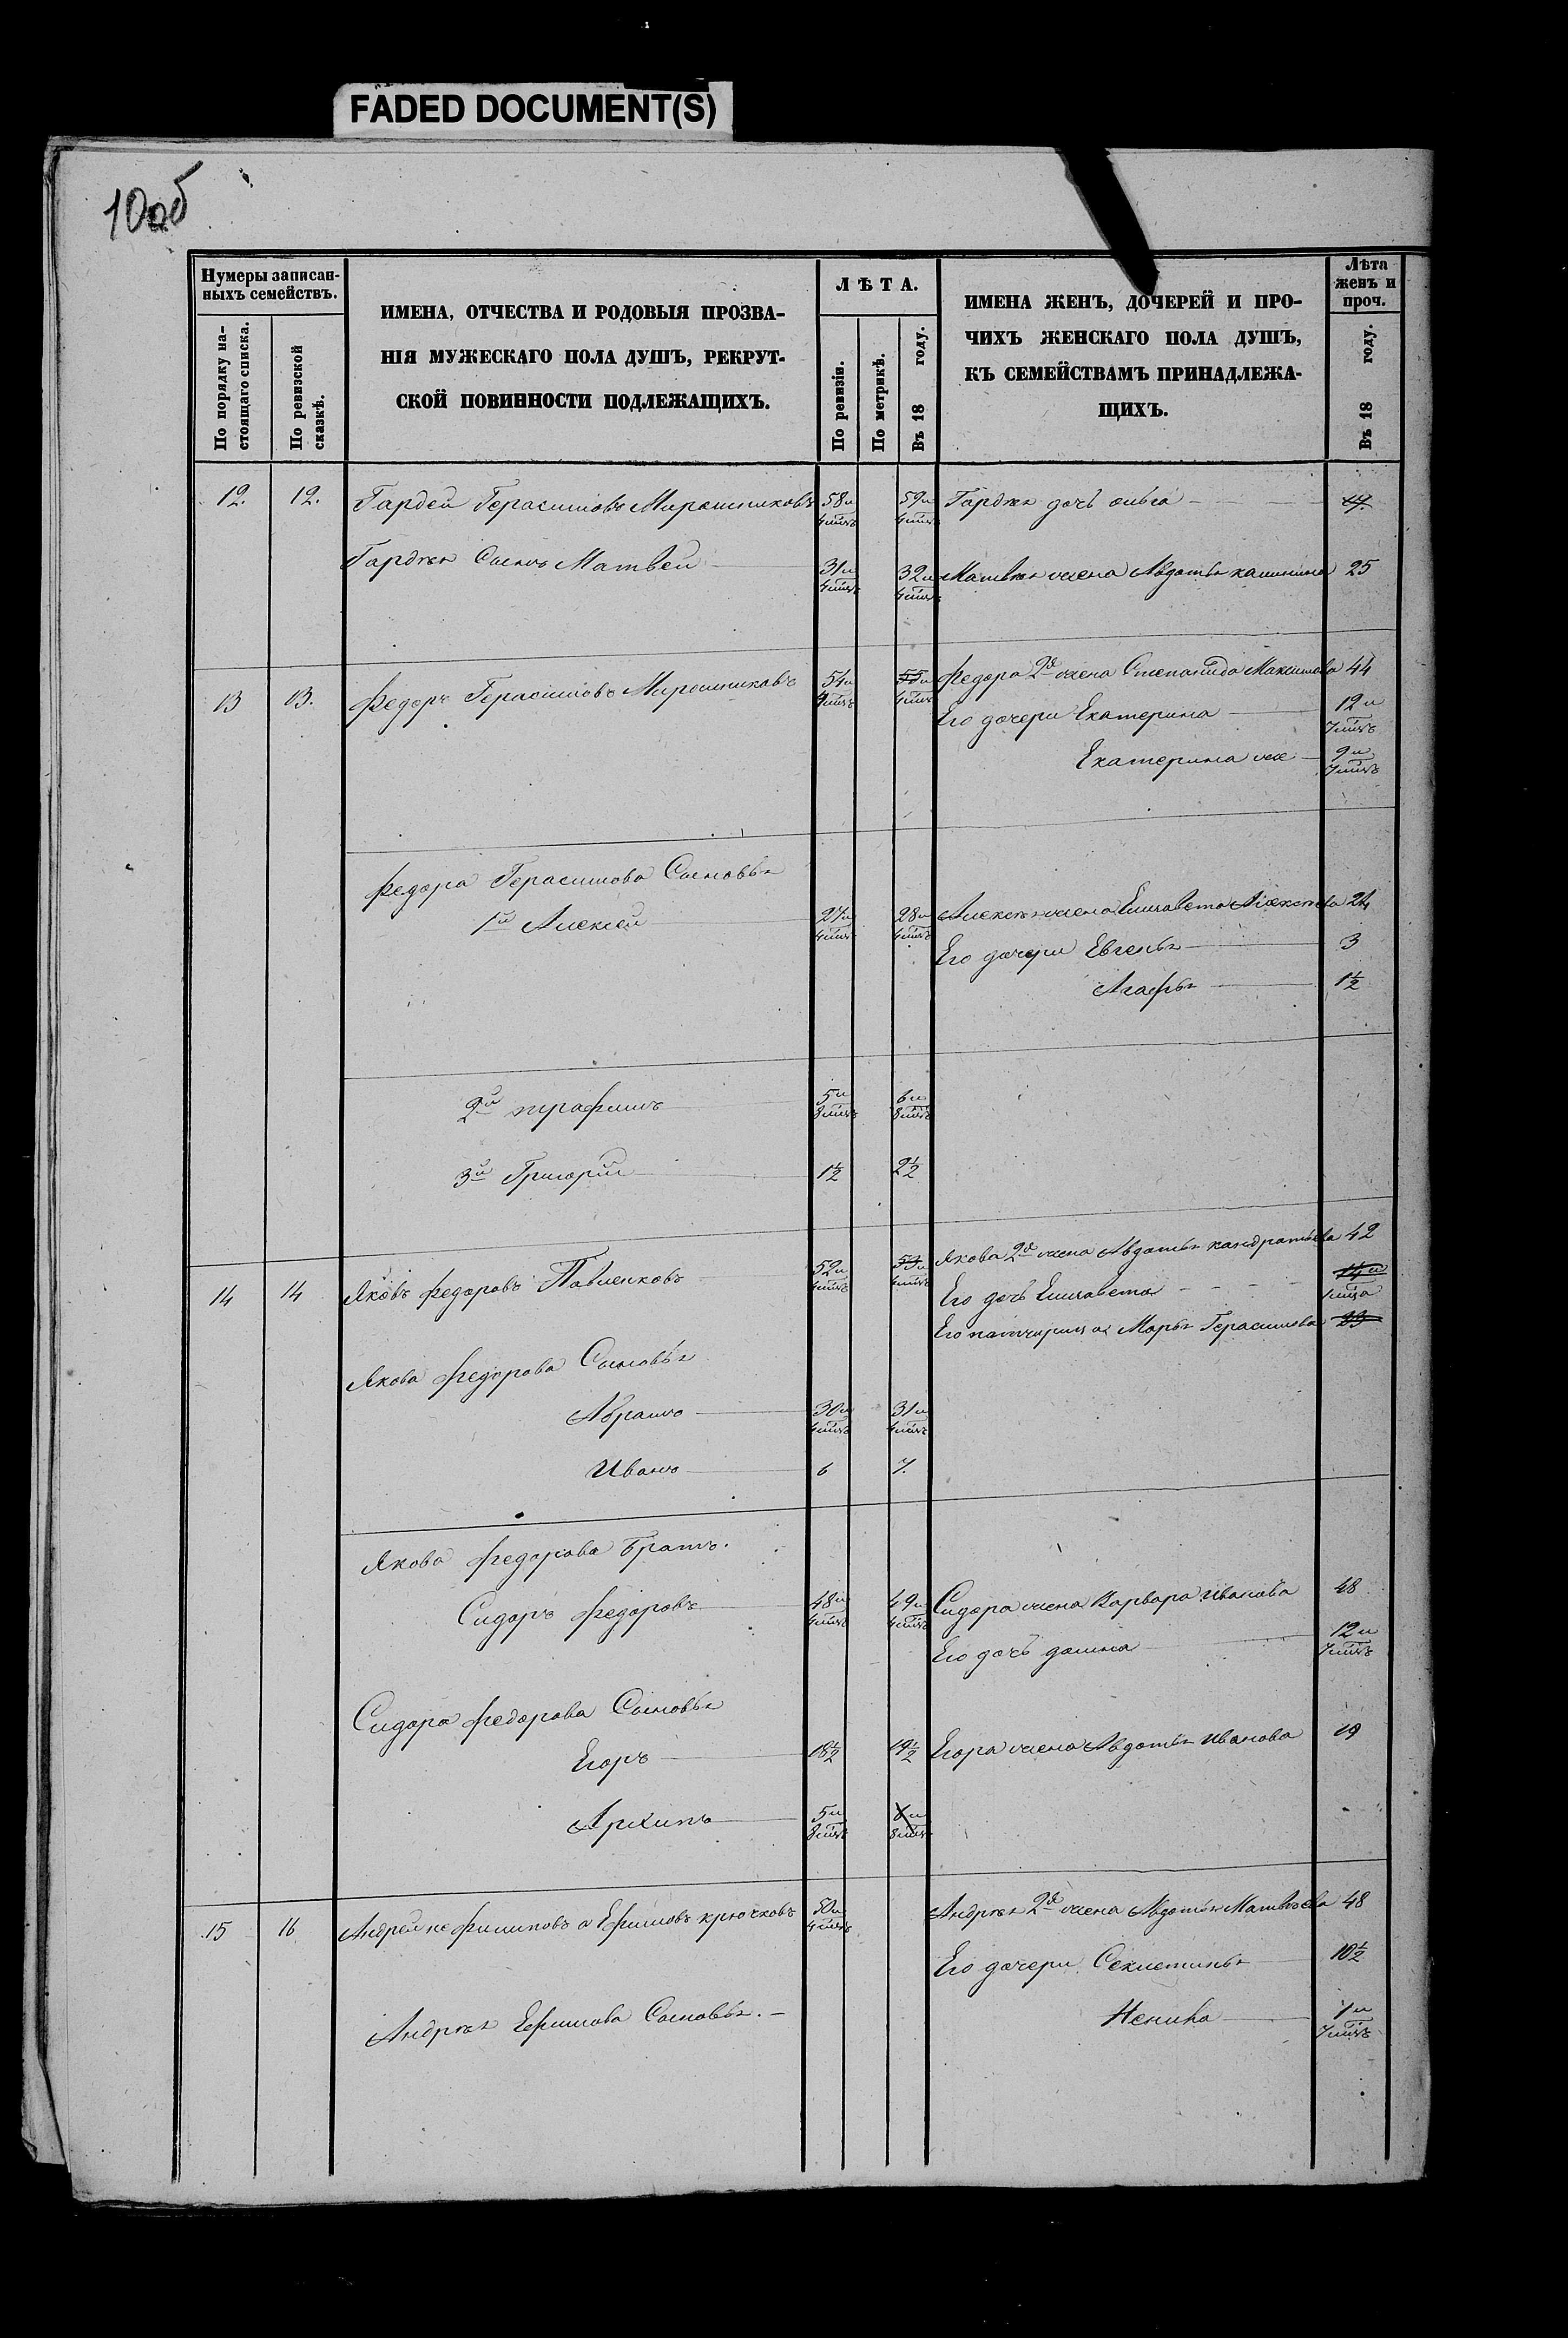 FADED DOCUMENT(S)
10об
Нумеры записан-
ныхъ семействъ.
По порядку на-
стоящаго списка.
По ревизской
сказкѣ.
ИМЕНА, ОТЧЕСТВА И РОДОВЫЯ ПРОЗВА-
НІЯ МУЖЕСКАГО ПОЛА ДУШЪ, РЕКРУТ-
СКОЙ ПОВИННОСТИ ПОДЛЕЖАЩИХЪ.
ЛѢТА.
По ревизіи.
По метрикѣ.
Въ 18 году.
ИМЕНА ЖЕНЪ, ДОЧЕРЕЙ И ПРО-
ЧИХЪ ЖЕНСКАГО ПОЛА ДУШЪ,
КЪ СЕМЕЙСТВАМЪ ПРИНАДЛЕЖА-
ЩИХЪ.
Лѣта
женъ и
проч.
Въ 18 году.
12. 12. Гардей Герасимовъ Мирошниковъ 58 и 4 мѣсъ 59 и 4 мѣсъ Гардѣя дочь
Гардѣя Сынъ Матвей 31 и 4 мѣсъ 32 и 4 мѣсъ Матвѣя жена Авдотья калинина 25
13 13. Федоръ Герасимовъ Мирошниковъ 54 и 4 мѣсъ 55 и 4 мѣсъ Федора 2я жена Степанида Максимова 44
Его дочери Екатерина 12 и 7 мѣсъ
Екатерина же 9 и 7 мѣсъ
Федора Герасимова Сыновья
1й Алексей 27 и 4 мѣсъ 28 и 4 мѣсъ Алексѣя жена Елизавета Алексѣева 24
Его дочери Евгенья 3
Агафья 1½
2й 5 и 8 мѣсъ 6 и 8 мѣсъ
3й Григорий 1½ 2½
14 14 Яковъ Федоровъ Павленковъ 52 и 4 мѣсъ 53 и 4 мѣсъ Якова 2я жена Авдотья кандратьева 42
Его дочь Елизавета 14 и
Его патчирица Марья Герасимова 23
Якова Федорова Сыновья
Абрамъ 30 и 4 мѣсъ 31 и 4 мѣсъ
Иванъ 6 7.
Якова Федорова братъ.
Сидоръ Федоровъ 48 и 4 мѣсъ 49 и 4 мѣсъ Сидора жена Варвара Иванова 48
Его дочь домна 12 и 7 мѣсъ
Сидора Федорова Сыновья
Егоръ 18½ 19½ Егора жена Авдотья Иванова 19
Архипъ 5 и 8 мѣсъ 6 и 8 мѣсъ
15 16 Андрей не Филиповъ а Ефимовъ крючковъ 50 и 4 мѣсъ Андрѣя 2я жена Авдотья Матвѣева 48
Его дочери 10½
Андрѣя Ефимова Сыновья. 1 и 7 мѣсъ